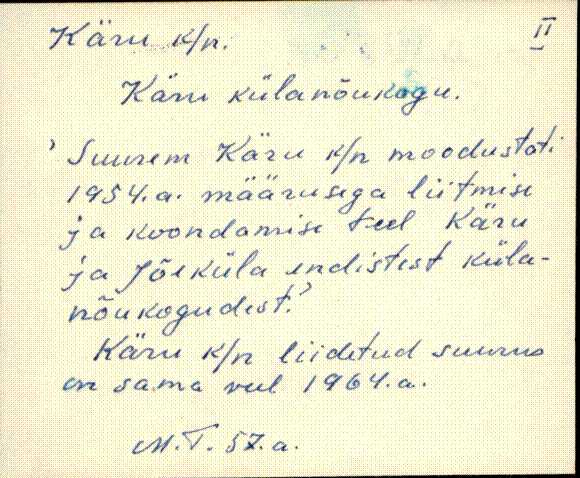 Käru k/n. II
Käru külanõukogu.
’ Suurem Käru k/n moodustati
1954.a. määrusega liitmise
ja koondamise teel Käru
ja Jõeküla endistest küla-
nõukogudest.’
Käru k/n liidetud suurus
on sama veel 1964.a.
M.T. 57.a.